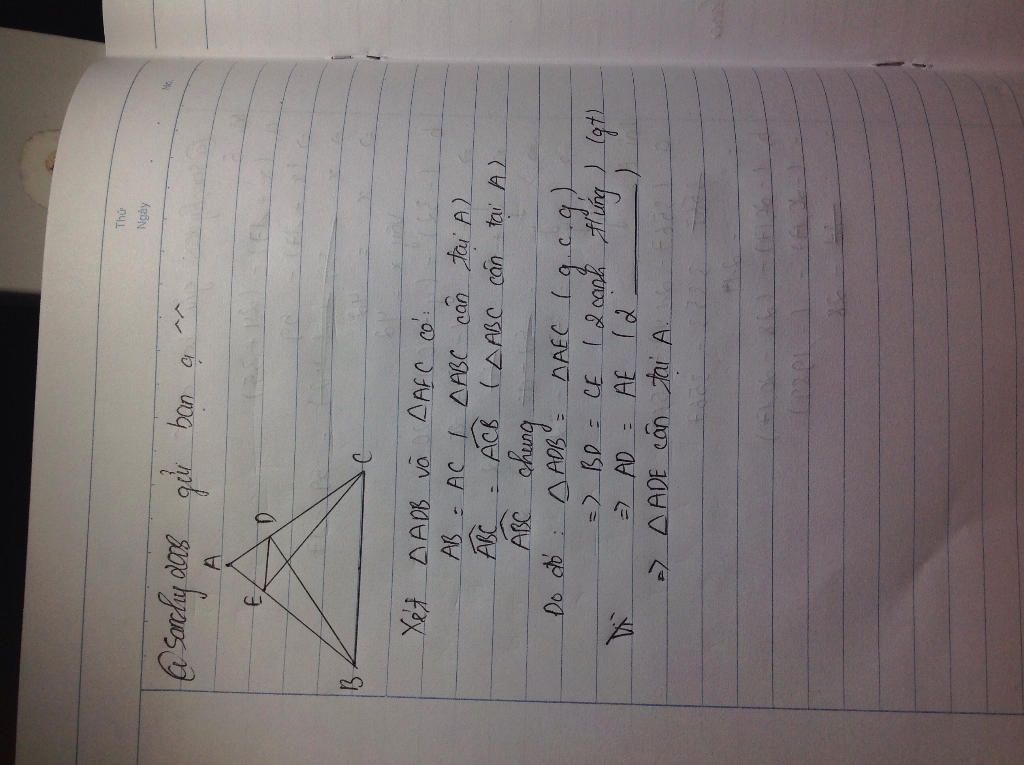 Thứ
Ngày
No.
@Sonchy2008 gửi bạn ạ ^^
A
E
D
B
C
Xét △ADB và △AEC có:
AB = AC ( △ABC cân tại A)
ABC = ACB ( △ABC cân tại A)
ABC chung
Do đó : △ADB = △AEC ( g.c.g)
=> BD = CE ( 2 cạnh tướng ) (gt)
=> AD = AE ( 2 ______ )
=> △ADE cân tại A.